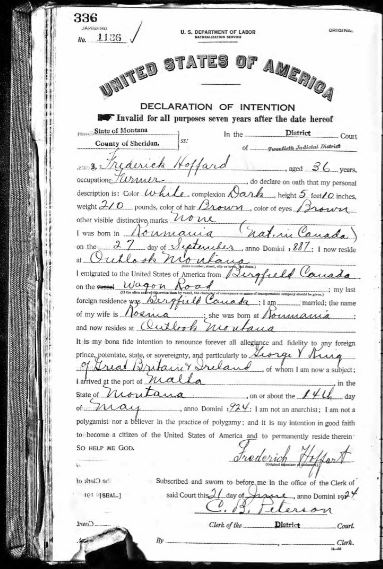 336
No. 1136
U. S. DEPARTMENT OF LABOR
NATURALIZATION SERVICE
ORIGINAL
UNITED STATES OF AMERICA
DECLARATION OF INTENTION
Invalid for all purposes seven years after the date hereof
State of Montana
County of Sheridan. ss:
In the District Court
of Twentieth Judicial District
I, Frederick Hoffard, aged 36 years,
occupation Farmer, do declare on oath that my personal
description is: Color White, complexion Dark, height 5 feet 10 inches,
weight 210 pounds, color of hair Brown, color of eyes Brown
other visible distinctive marks None
I was born in Roumania (Natz in Canada)
on the 27 day of September, anno Domini 1887; I now reside
at Outlook Montana
I emigrated to the United States of America from Bergfield Canada
on the vessel Wagon Road; my last
foreign residence was Bergfield Canada; I am married; the name
of my wife is Rosina; she was born at Roumania
and now resides at Outlook Montana
It is my bona fide intention to renounce forever all allegiance and fidelity to any foreign
prince, potentate, state, or sovereignty, and particularly to George V King
of Great Britain & Ireland, of whom I am now a subject;
I arrived at the port of Malta, in the
State of Montana, on or about the 14th day
of May, anno Domini 1924; I am not an anarchist; I am not a
polygamist nor a believer in the practice of polygamy; and it is my intention in good faith
to become a citizen of the United States of America and to permanently reside therein:
SO HELP ME GOD.
Frederich Hoffart
Subscribed and sworn to before me in the office of the Clerk of
[SEAL.] said Court this 21 day of June, anno Domini 1924
C. B. Peterson
Clerk of the District Court.
By Clerk.